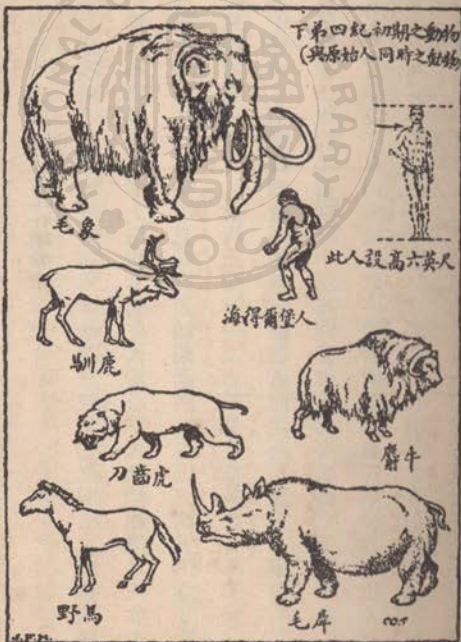 下第四紀初期之動物
(與原始人同時之動物)
毛象
此人設高六英尺
海得爾堡人
馴鹿
麝牛
刀齒虎
野馬
毛犀
J.F.H.